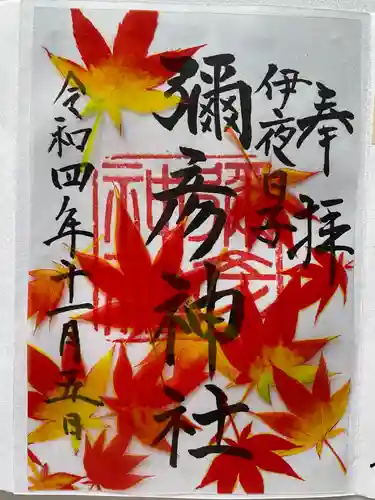 奉拝
伊夜日子
彌彦神社
令和四年十一月五日